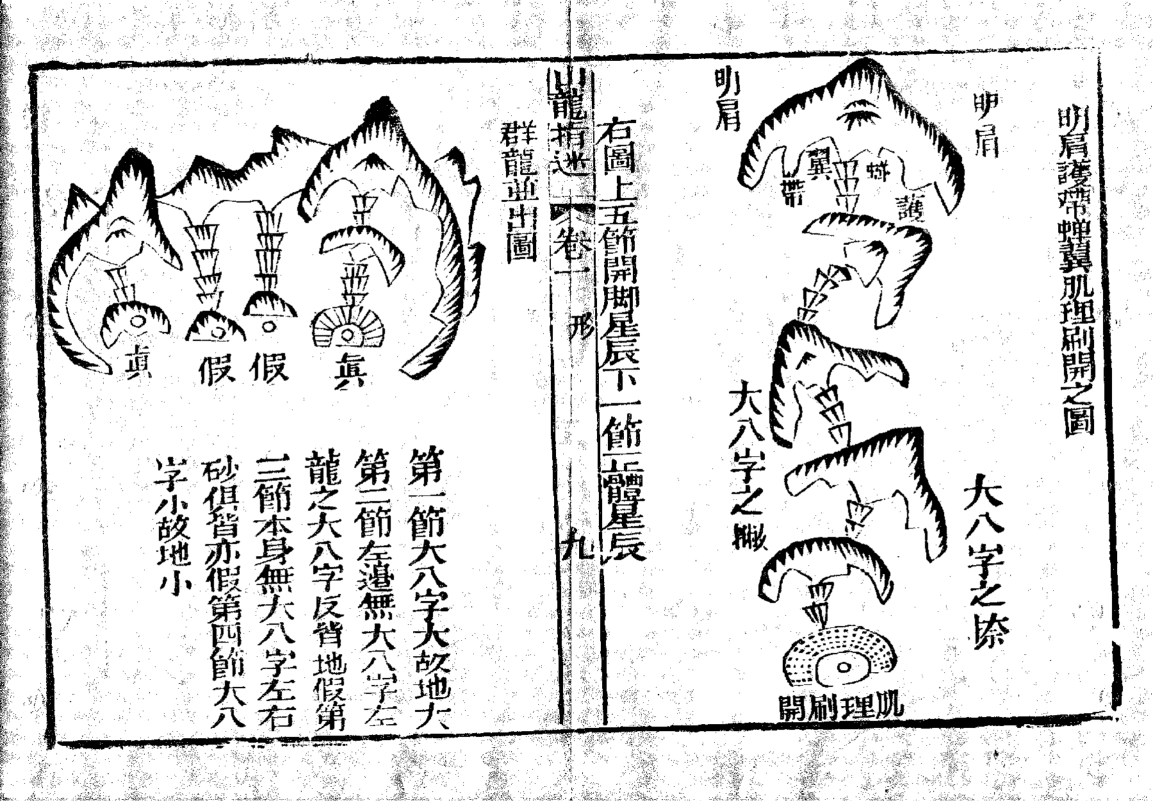 明肩護帶蟬翼肌理刷開之圖
明肩
明肩
護
蟬
翼
帶
大八字之捺
大八字之
肌理刷開
右圖上五節開脚星辰下一節正體星辰
山龍指迷
卷一
形
九
群龍並出圖
眞
假
假
眞
第一節大八字大故地大
第二節左邉無大八字左
龍之大八字反背地假第
三節本身無大八字左右
砂俱皆亦假第四節大八
字小故地小